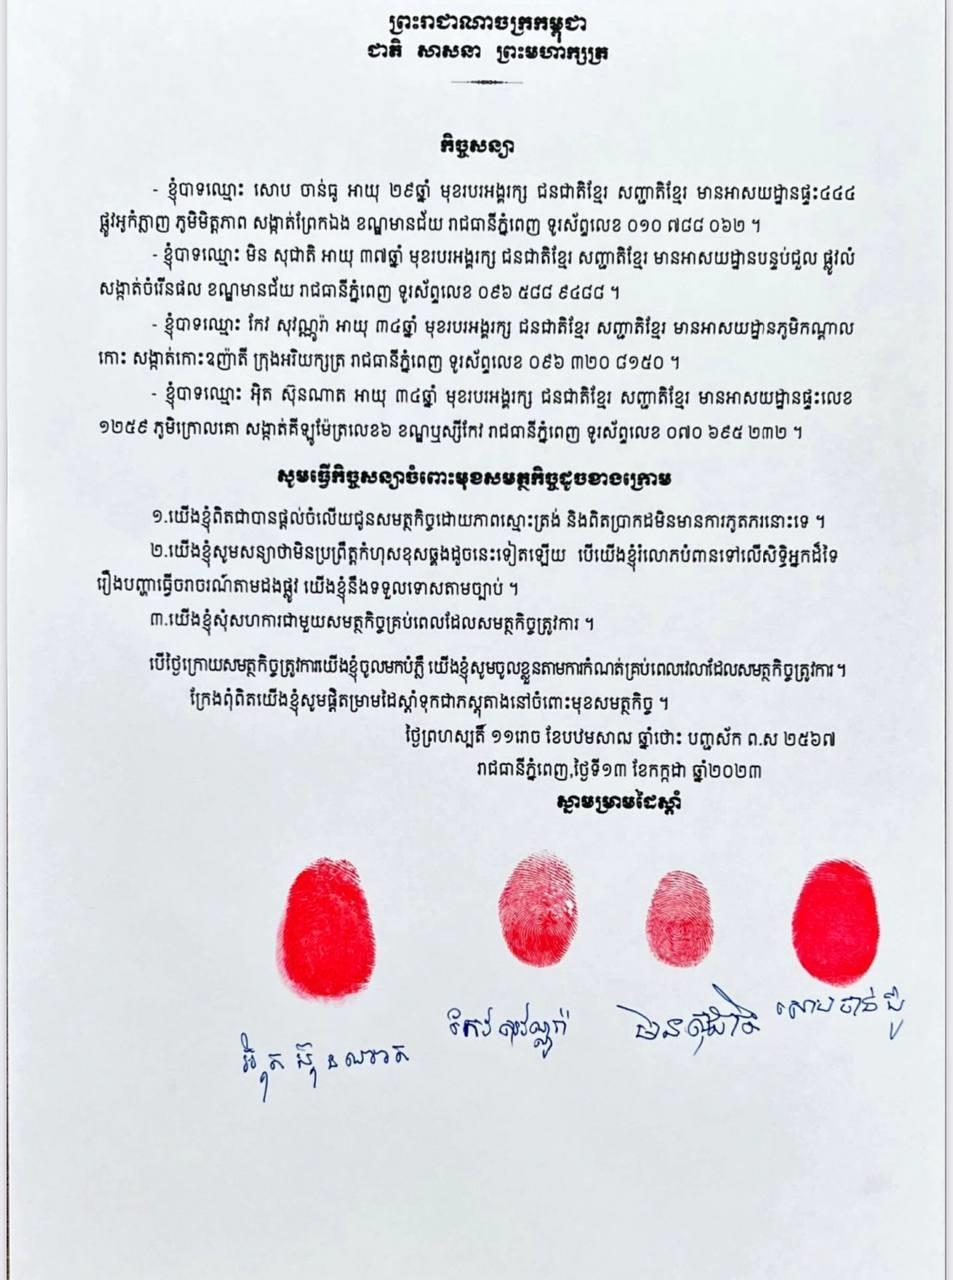 ព្រះរាជាណាចក្រកម្ពុជា
ជាតិ សាសនា ព្រះមហាក្សត្រ
កិច្ចសន្យា
- ខ្ញុំបាទឈ្មោះ សោប ចាន់ធូ អាយុ ២៩ឆ្នាំ មុខរបរអង្គរក្ស ជនជាតិខ្មែរ សញ្ជាតិខ្មែរ មានអាសយដ្ឋានផ្ទះ៤៤៤
ផ្លូវអូកំភ្លាញ ភូមិមិត្តភាព សង្កាត់ព្រែកឯង ខណ្ឌមានជ័យ រាជធានីភ្នំពេញ ទូរស័ព្ទលេខ ០១០ ៧៨៨ ០៦២ ។
- ខ្ញុំបាទឈ្មោះ មិន សុជាតិ អាយុ ៣៧ឆ្នាំ មុខរបរអង្គរក្ស ជនជាតិខ្មែរ សញ្ជាតិខ្មែរ មានអាសយដ្ឋានបន្ទប់ជួល ផ្លូវលំ
សង្កាត់ចំរើនផល ខណ្ឌមានជ័យ រាជធានីភ្នំពេញ ទូរស័ព្ទលេខ ០៩៦ ៥៨៨ ៩៤៨៨ ។
- ខ្ញុំបាទឈ្មោះ កែវ សុវណ្ណូរ៉ា អាយុ ៣៤ឆ្នាំ មុខរបរអង្គរក្ស ជនជាតិខ្មែរ សញ្ជាតិខ្មែរ មានអាសយដ្ឋានភូមិកណ្តាល
កោះ សង្កាត់កោះឧញ៉ាតី ក្រុងអរិយក្សត្រ រាជធានីភ្នំពេញ ទូរស័ព្ទលេខ ០៩៦ ៣២០ ៨១៥០ ។
- ខ្ញុំបាទឈ្មោះ អ៊ិត ស៊ុនណាត អាយុ ៣៤ឆ្នាំ មុខរបរអង្គរក្ស ជនជាតិខ្មែរ សញ្ជាតិខ្មែរ មានអាសយដ្ឋានផ្ទះលេខ
១២៥៩ ភូមិក្រោលគោ សង្កាត់គីឡូម៉ែត្រលេខ៦ ខណ្ឌឬស្សីកែវ រាជធានីភ្នំពេញ ទូរស័ព្ទលេខ ០៧០ ៦៩៥ ២៣២ ។
សូមធ្វើកិច្ចសន្យាចំពោះមុខសមត្ថកិច្ចដូចខាងក្រោម
១.យើងខ្ញុំពិតជាបានផ្តល់ចំលើយជូនសមត្ថកិច្ចដោយភាពស្មោះត្រង់ និងពិតប្រាកដមិនមានការភូតភរនោះទេ ។
២.យើងខ្ញុំសូមសន្យាថាមិនប្រព្រឹត្តកំហុសខុសឆ្គងដូចនេះទៀតឡើយ បើយើងខ្ញុំរំលោភបំពានទៅលើសិទ្ធិអ្នកដ៏ទៃ
រឿងបញ្ហាធ្វើចរាចរណ៍តាមដងផ្លូវ យើងខ្ញុំនឹងទទួលទោសតាមច្បាប់ ។
៣.យើងខ្ញុំសុំសហការជាមួយសមត្ថកិច្ចគ្រប់ពេលដែលសមត្ថកិច្ចត្រូវការ ។
បើថ្ងៃក្រោយសមត្ថកិច្ចត្រូវការយើងខ្ញុំចូលមកបំភ្លឺ យើងខ្ញុំសូមចូលខ្លួនតាមការកំណត់គ្រប់ពេលវេលាដែលសមត្ថកិច្ចត្រូវការ ។
ក្រែងពុំពិតយើងខ្ញុំសូមផ្តិតម្រាមដៃស្តាំទុកជាភស្តុតាងនៅចំពោះមុខសមត្ថកិច្ច ។
ថ្ងៃព្រហស្បតិ៍ ១១រោច ខែបឋមសាឍ ឆ្នាំថោះ បញ្ចស័ក ព.ស ២៥៦៧
រាជធានីភ្នំពេញ,ថ្ងៃទី១៣ ខែកក្កដា ឆ្នាំ២០២៣
ស្នាមម្រាមដៃស្តាំ
អ៊ិត ស៊ុនណាត កែវ សុវណ្ណូរ៉ា មិន សុជាតិ សោប ចាន់ ធូ